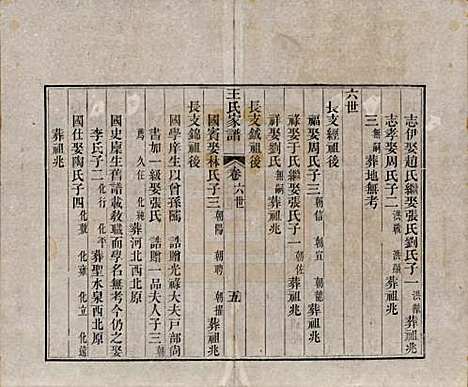 六世
志伊娶趙氏繼娶張氏劉氏子一 洪獻
志孝娶周氏子二 洪戰 洪顯 葬祖兆
三 無嗣 葬地無考
長支經祖後
福娶周氏子三 朝信 朝宣 朝龍 葬祖兆
祿娶于氏繼娶張氏子一 朝佐
祥娶劉氏 無嗣 葬祖兆
長支鉞祖後
王氏家譜 卷六世 五
國賓娶林氏子三 朝陽 朝聘 朝擢 葬祖兆
長支錦祖後
國學庠生以曾孫 誥贈光祿大夫戶部尚
書加一級娶張氏 誥贈一品夫人子三
化純 久任 葬河北西北原
國史庠生舊譜載敎職而學名無考今仍之娶
李氏子二 化行 化平 葬聖水泉西北原
國仕娶陶氏子四 化成 化雍 化立 化遠
葬祖兆